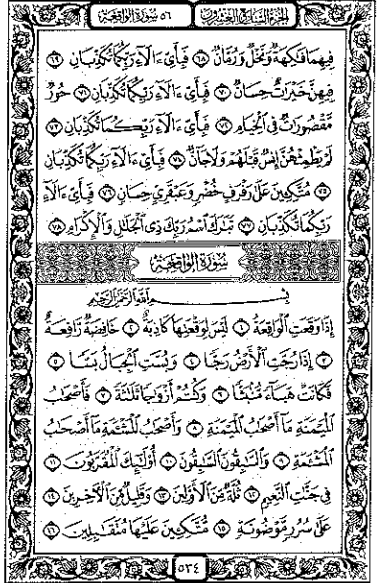 الجزء السابع والعشرون ٥٦ سورة الواقعة
فِيهِمَا فَٰكِهَةٌ وَنَخْلٌ وَرُمَّانٌ ٦٨ فَبِأَيِّ ءَالَآءِ رَبِّكُمَا تُكَذِّبَانِ ٦٩
فِيهِنَّ خَيْرَٰتٌ حِسَانٌ ٧٠ فَبِأَيِّ ءَالَآءِ رَبِّكُمَا تُكَذِّبَانِ ٧١ حُورٌ
مَّقْصُورَٰتٌ فِي ٱلْخِيَامِ ٧٢ فَبِأَيِّ ءَالَآءِ رَبِّكُمَا تُكَذِّبَانِ ٧٣
لَمْ يَطْمِثْهُنَّ إِنسٌ قَبْلَهُمْ وَلَا جَآنٌّ ٧٤ فَبِأَيِّ ءَالَآءِ رَبِّكُمَا تُكَذِّبَانِ
٧٥ مُتَّكِـِٔينَ عَلَىٰ رَفْرَفٍ خُضْرٍ وَعَبْقَرِيٍّ حِسَانٍ ٧٦ فَبِأَيِّ ءَالَآءِ
رَبِّكُمَا تُكَذِّبَانِ ٧٧ تَبَٰرَكَ ٱسْمُ رَبِّكَ ذِي ٱلْجَلَٰلِ وَٱلْإِكْرَامِ ٧٨
سُورَةُ الوَاقِعَةِ
بِسْمِ ٱللَّهِ ٱلرَّحْمَٰنِ ٱلرَّحِيمِ
إِذَا وَقَعَتِ ٱلْوَاقِعَةُ ١ لَيْسَ لِوَقْعَتِهَا كَاذِبَةٌ ٢ خَافِضَةٌ رَّافِعَةٌ
٣ إِذَا رُجَّتِ ٱلْأَرْضُ رَجًّا ٤ وَبُسَّتِ ٱلْجِبَالُ بَسًّا ٥
فَكَانَتْ هَبَآءً مُّنۢبَثًّا ٦ وَكُنتُمْ أَزْوَٰجًا ثَلَٰثَةً ٧ فَأَصْحَٰبُ
ٱلْمَيْمَنَةِ مَآ أَصْحَٰبُ ٱلْمَيْمَنَةِ ٨ وَأَصْحَٰبُ ٱلْمَشْـَٔمَةِ مَآ أَصْحَٰبُ
ٱلْمَشْـَٔمَةِ ٩ وَٱلسَّٰبِقُونَ ٱلسَّٰبِقُونَ ١٠ أُو۟لَٰٓئِكَ ٱلْمُقَرَّبُونَ ١١
فِي جَنَّٰتِ ٱلنَّعِيمِ ١٢ ثُلَّةٌ مِّنَ ٱلْأَوَّلِينَ ١٣ وَقَلِيلٌ مِّنَ ٱلْءَاخِرِينَ ١٤
عَلَىٰ سُرُرٍ مَّوْضُونَةٍ ١٥ مُّتَّكِـِٔينَ عَلَيْهَا مُتَقَٰبِلِينَ ١٦
٥٣٤